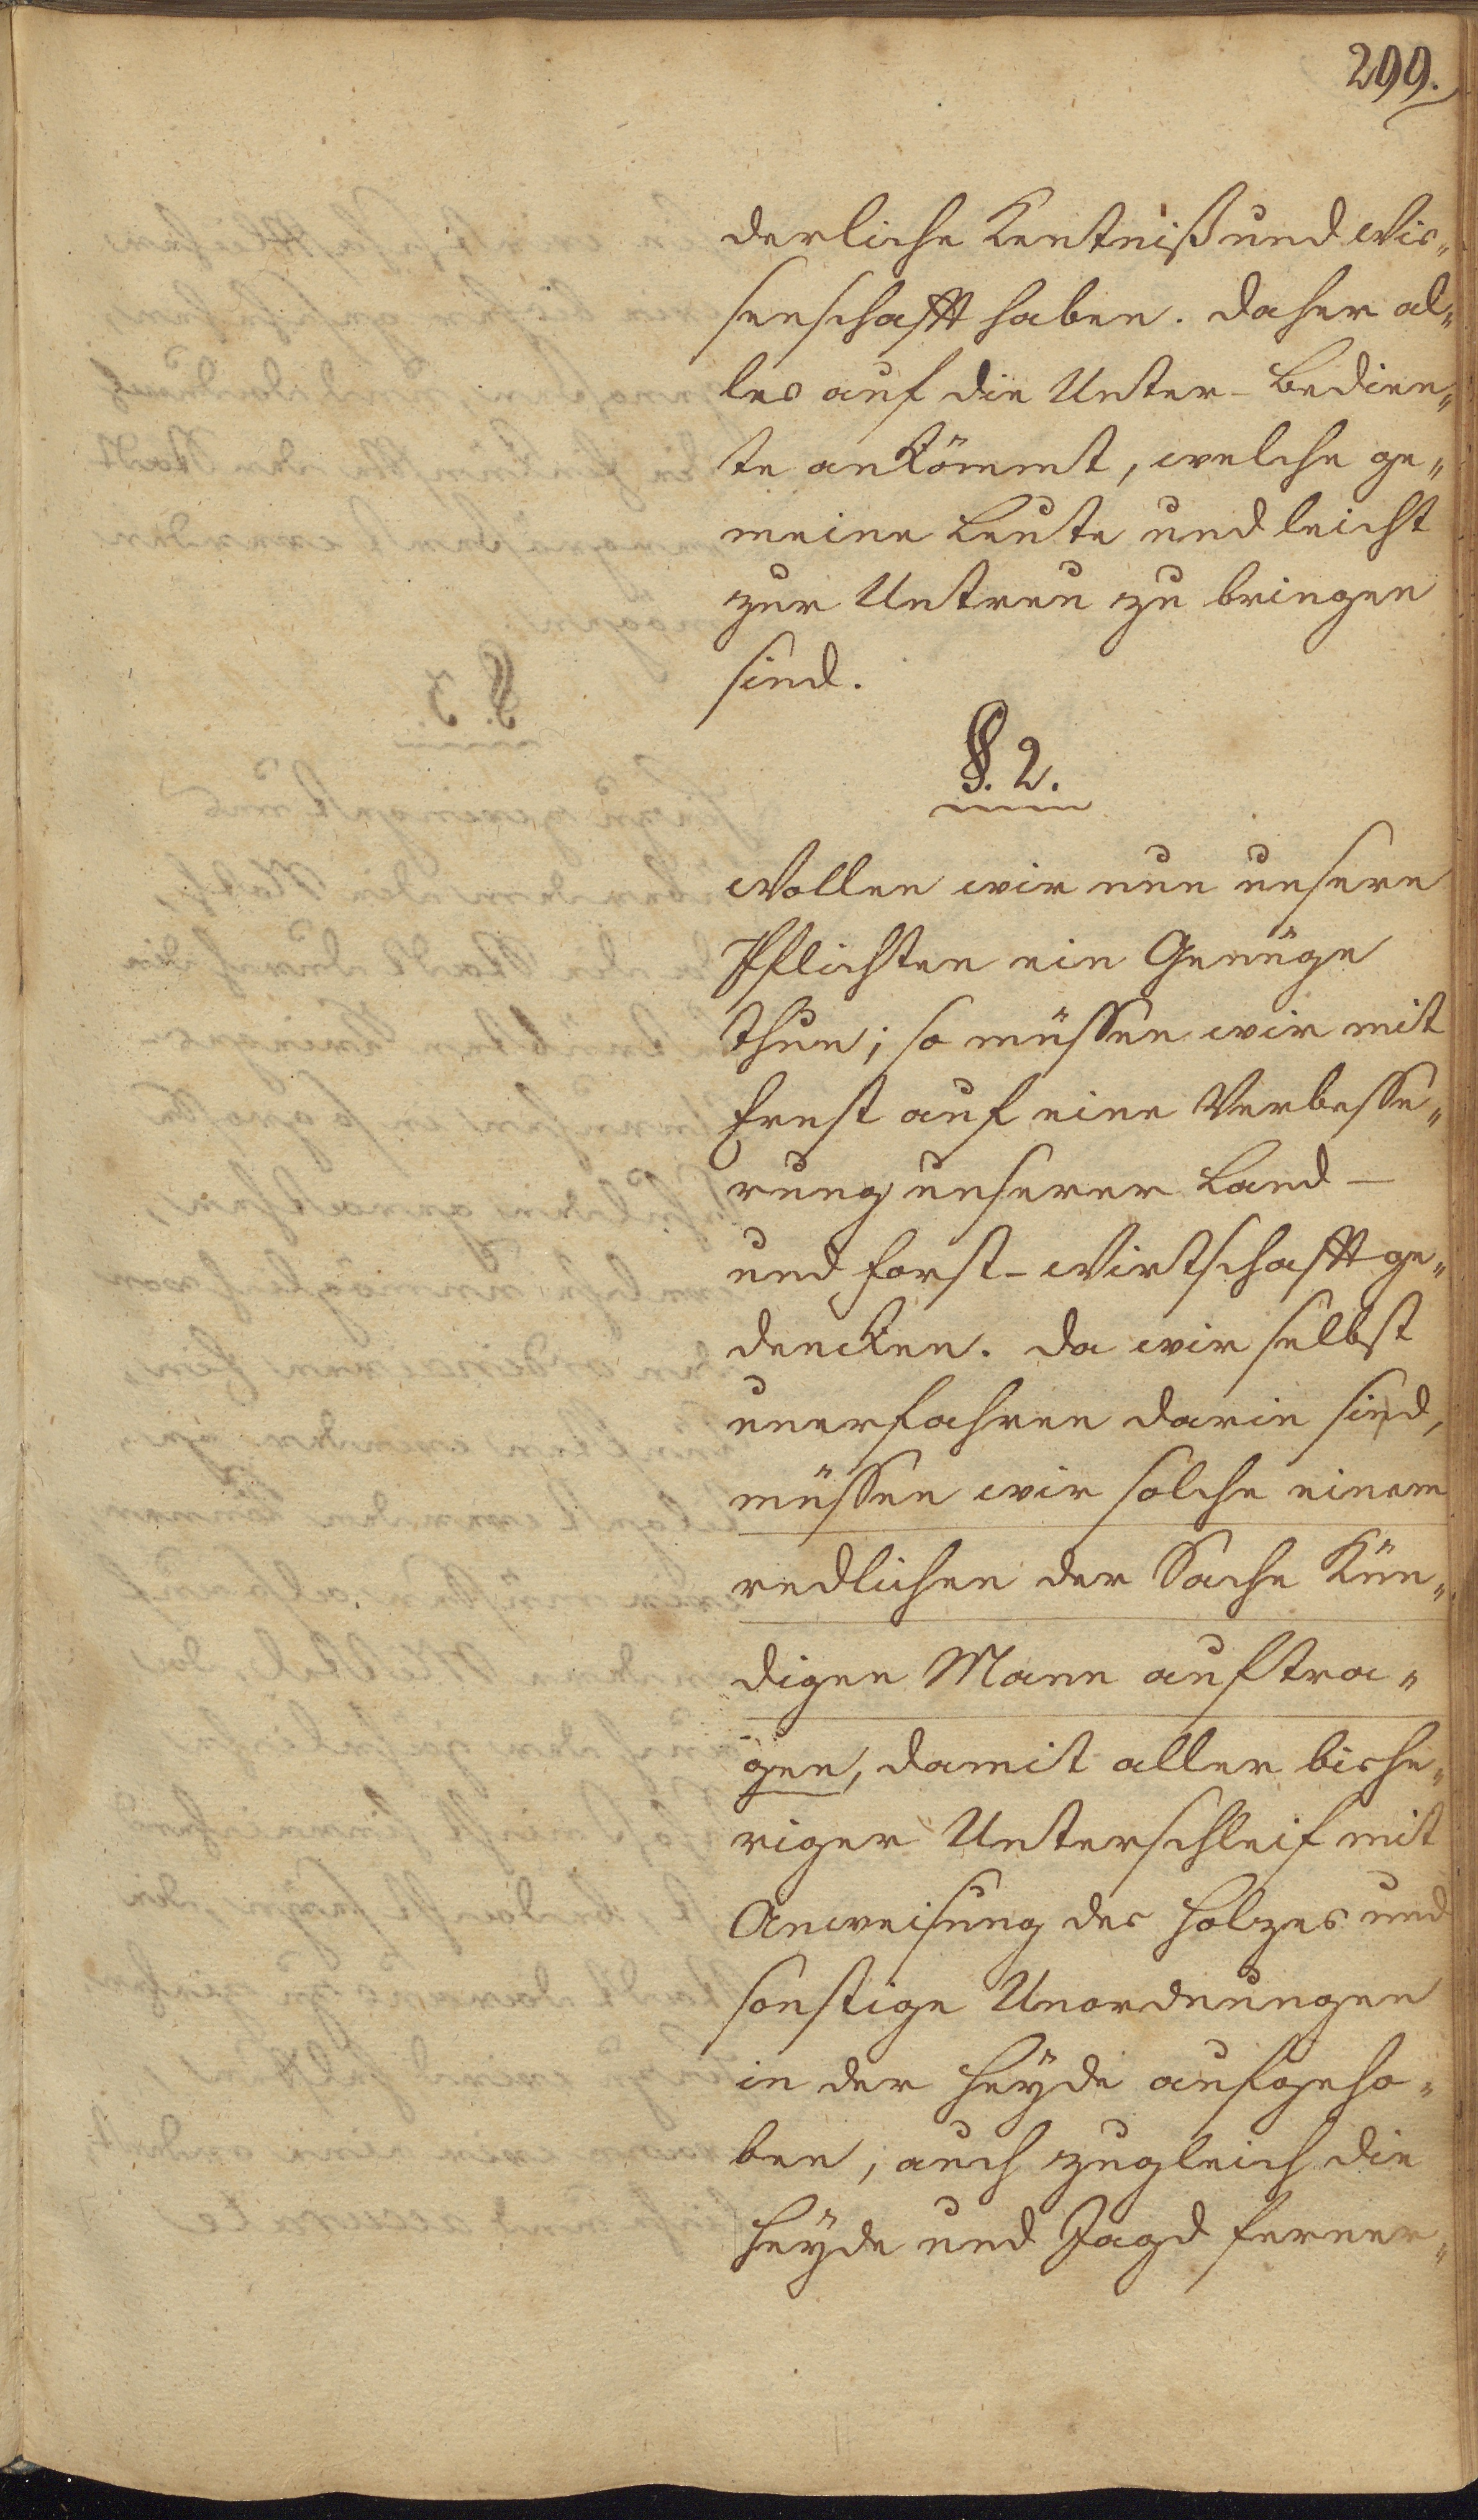 299.
derliche Kentniß und Wis„
senschafft haben. Daher al„
les auf die Unter-Bedien„
te ankömmt, welche ge„
meine Leute und leicht
zur Untreu zu bringen
sind.
§. 2.
Wollen wir nun unsern
Pflichten ein Genüge
thun; so müssen wir mit
Ernst auf eine Verbesse„
rung unserer Land-
und Forst-Wirtschafft ge„
dencken. Da wir selbst
unerfahren darin sind,
müssen wir solche einem
redlichen der Sache Kün„
digen Mann auftra„
gen, damit aller bishe„
riger Unterschleif mit
Anweisung des Holzes und
sonstige Unordnungen
in der Heyde aufgeho„
ben, auch zugleich die
Heyde und Jagd ferner„